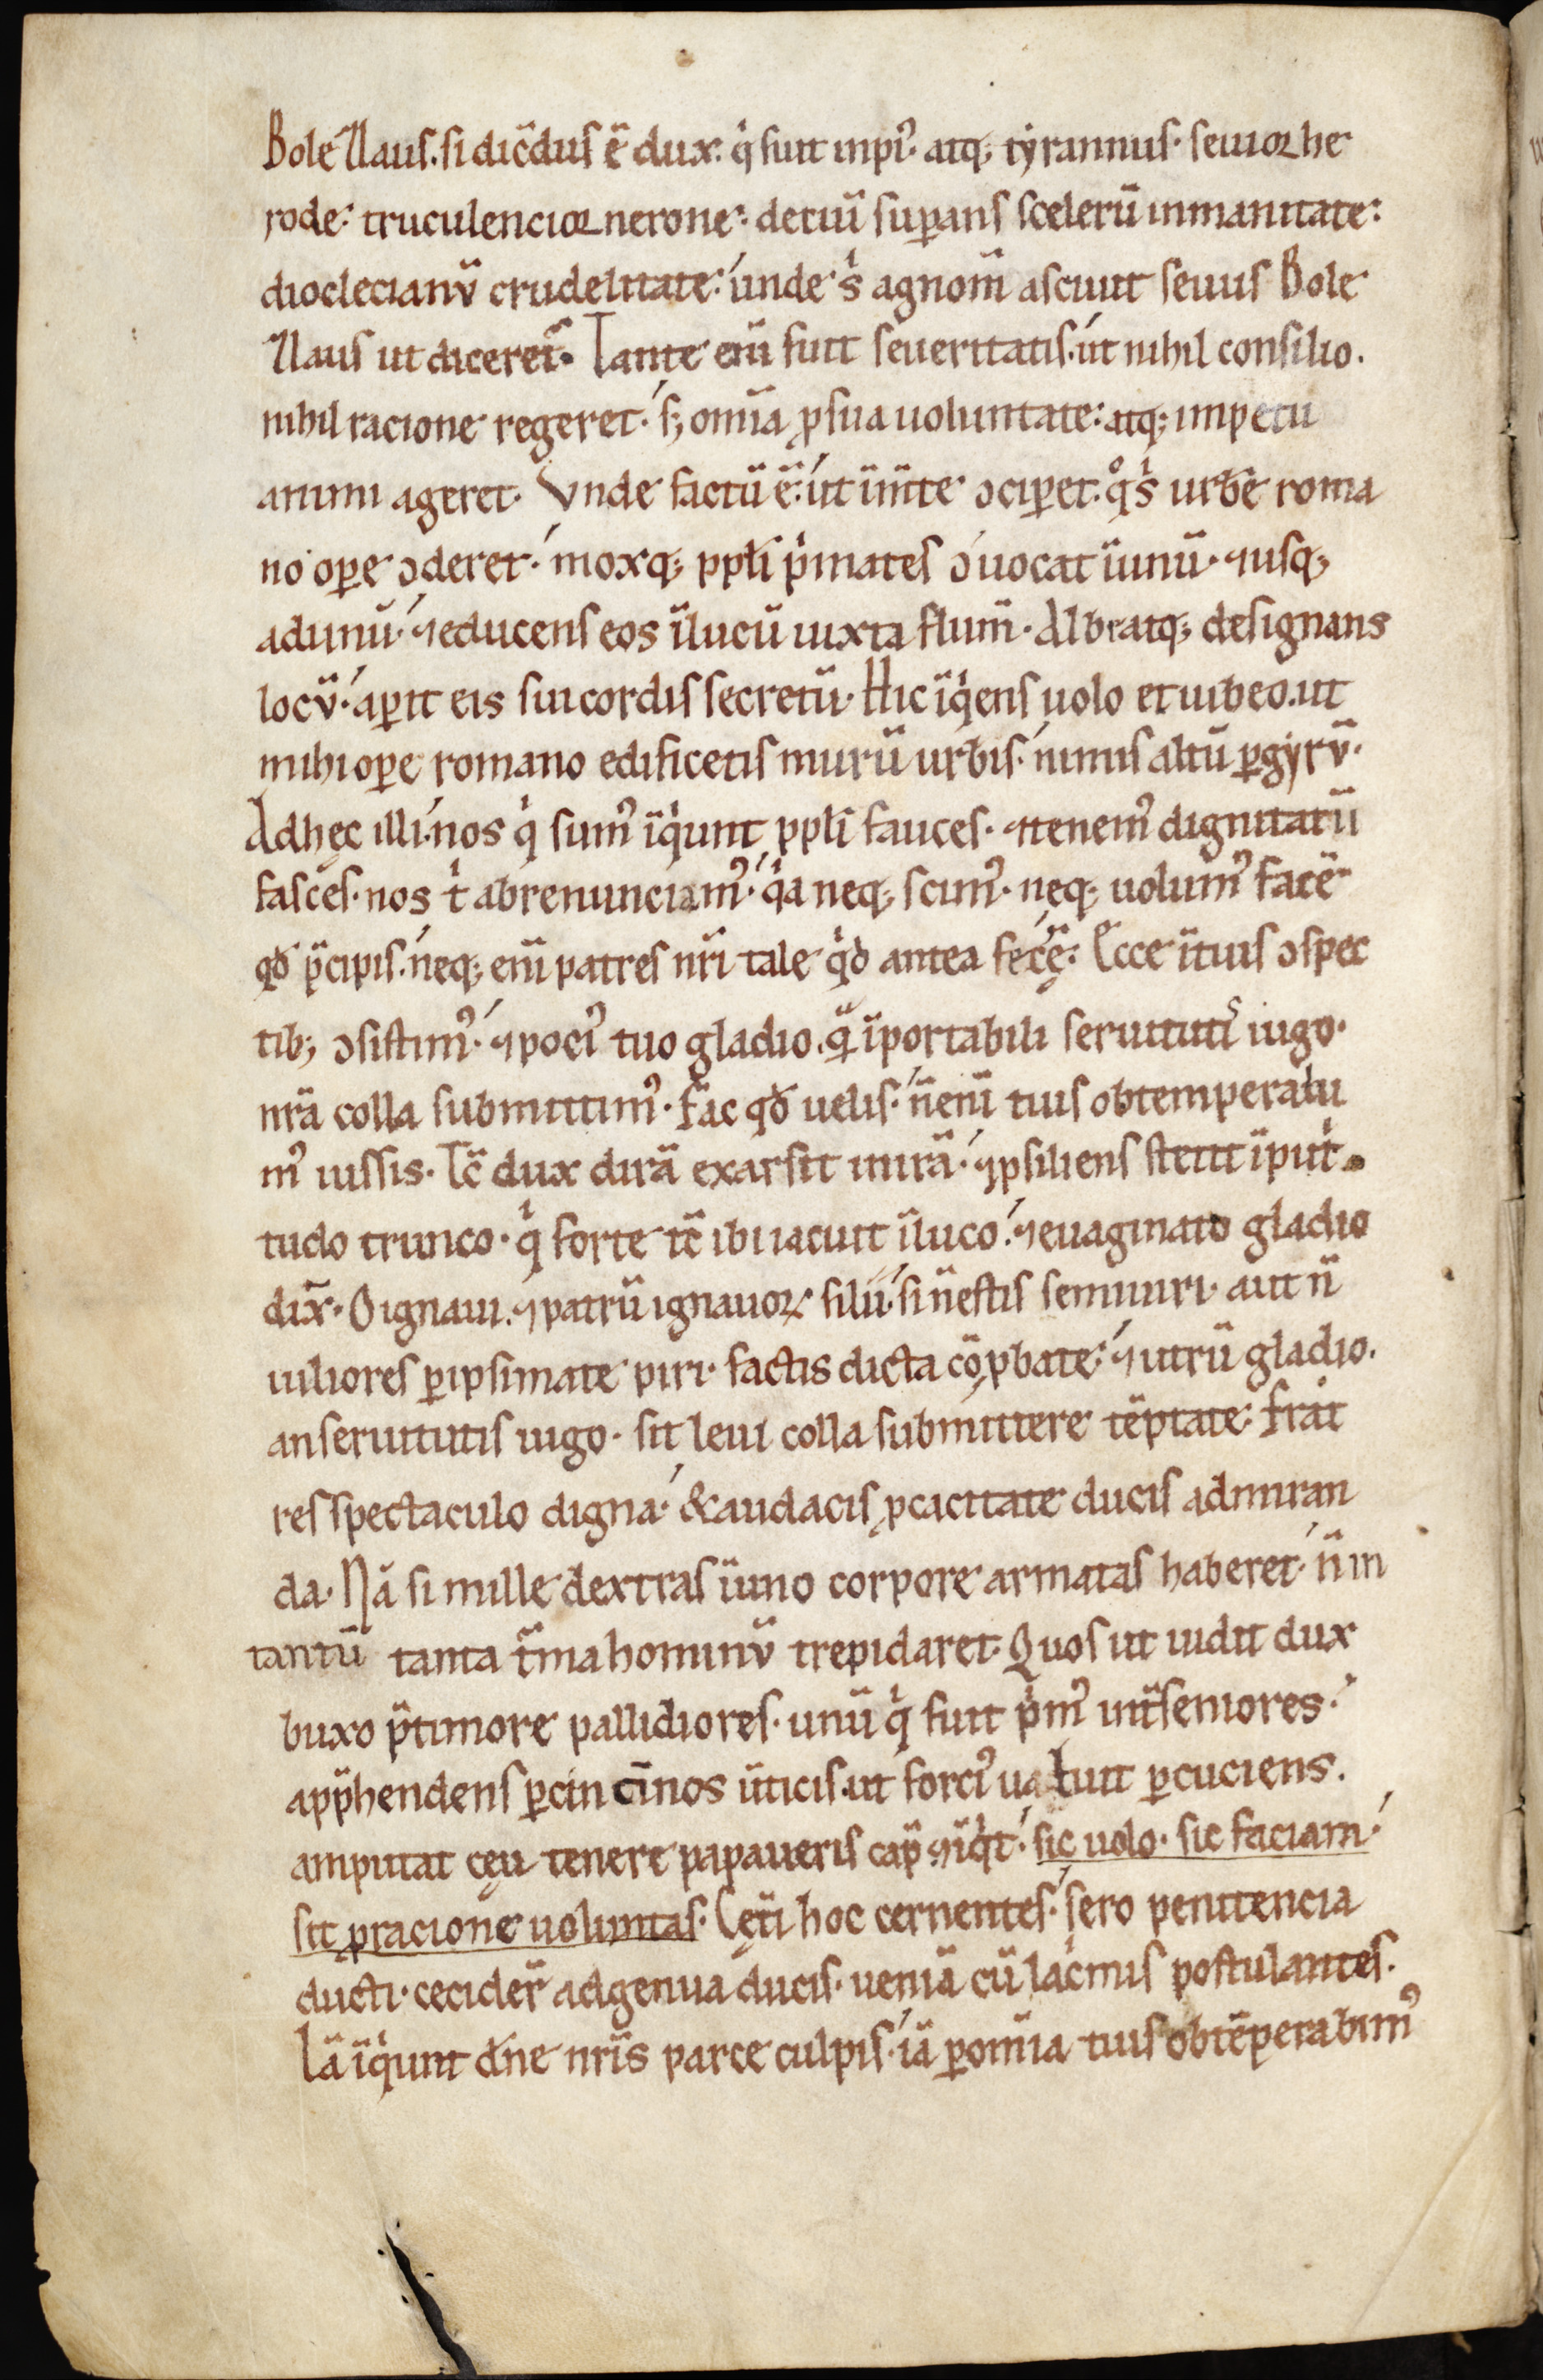 Bolezlaus. si dicdus ē dux. qͥ fuit inpiꝰ. atq; tyrannus. seuior he
rode: truculencior nerone: deciū suꝑans scelerū inmanitate:
dioclecianū crudelitate: unde sͥ agnom̄ asciuit seuus Bole
zlaus ut diceret᷑. Tante eni̅ fuit seueritatis. ut nihil consilio.
nihil racione regeret. s; om̅ia ꝓ sua uoluntate: atq; impetu
animi ageret. Vnde factū ē: ut ī m̄te ↄciꝑet. qͦ sͥ urbē roma
no oꝑe ↄderet. moxq; ppłi pͥmates ↄuocat ī unū. ⁊ usq;
ad unū. ⁊ educens eos ī lucū iuxta flum̄. Albi atq; designans
locū. aꝑit eis sui cordis secretū. Hic īqͥens uolo et iubeo. ut
mihi oꝑe romano edificetis murū urbis. nimis altū ꝑ gyrū.
Ad hęc illi. nos qͥ sumꝰ īqͥunt ppłi fauces. ⁊ tenemꝰ dignitatū
fasces. nos tͥ abrenunciamꝰ. qͥa neq; scimꝰ. neq; uolumꝰ facē
qđ p̄cipis. neq; eni̅ patres nr̄i tale qͥđ antea fecē᷑. Ecce ī tuis ↄspec
tib; ↄsistimꝰ. ⁊ pociꝰ tuo gladio. qͣ īportabili seruitutiˢ iugo.
nr̄a colla submittimꝰ. Fac qđ uelis. n̄ eni̅ tuis obtemperabi
mꝰ iussis. Tc̄ dux dirā exarsit in irā. ⁊ ꝓsiliens stetit ī putͥ
tudo trunco. qͥ forte tc̄ ibi iacuit ī luco. ⁊ euaginato gladio
dix̄. O ignaui. ⁊ patrū ignauoꝝ filii. si n̄ estis semiuiri. aut n̄
uiliores ꝑipsimate piri. factis dicta cōꝓbate: ⁊ utrū gladio.
an seruitutis iugo. sit leui colla submittere tēptate. Erat
res spectaculo digna. & audacis ꝓcacitate ducis admiran
da. Nā si mille dextras ī uno corpore armatas haberet. n̄ in
tantū tanta t̄ma hominū trepidaret. Quos ut uidit dux
buxo p̄ timore pallidiores. unū qͥ fuit pͥmꝰ int̄ seniores.
app̄hendens ꝑ cincīnos ūticis. ut forciꝰ ualuit ꝑcuciens.
amputat ceu tenere papaueris cap̄ ⁊ īqͥt. sic uolo. sic faciam.
sit ꝓ racione uoluntas. Cęt̄i hoc cernentes. sero penitencia
ducti. cecider̄ ad genua ducis. ueniā cū lacͥmis postulantes.
Iā īqͥunt dn̄e nr̄is parce culpis. iā ꝑ om̅ia tuis obtēperabimꝰ